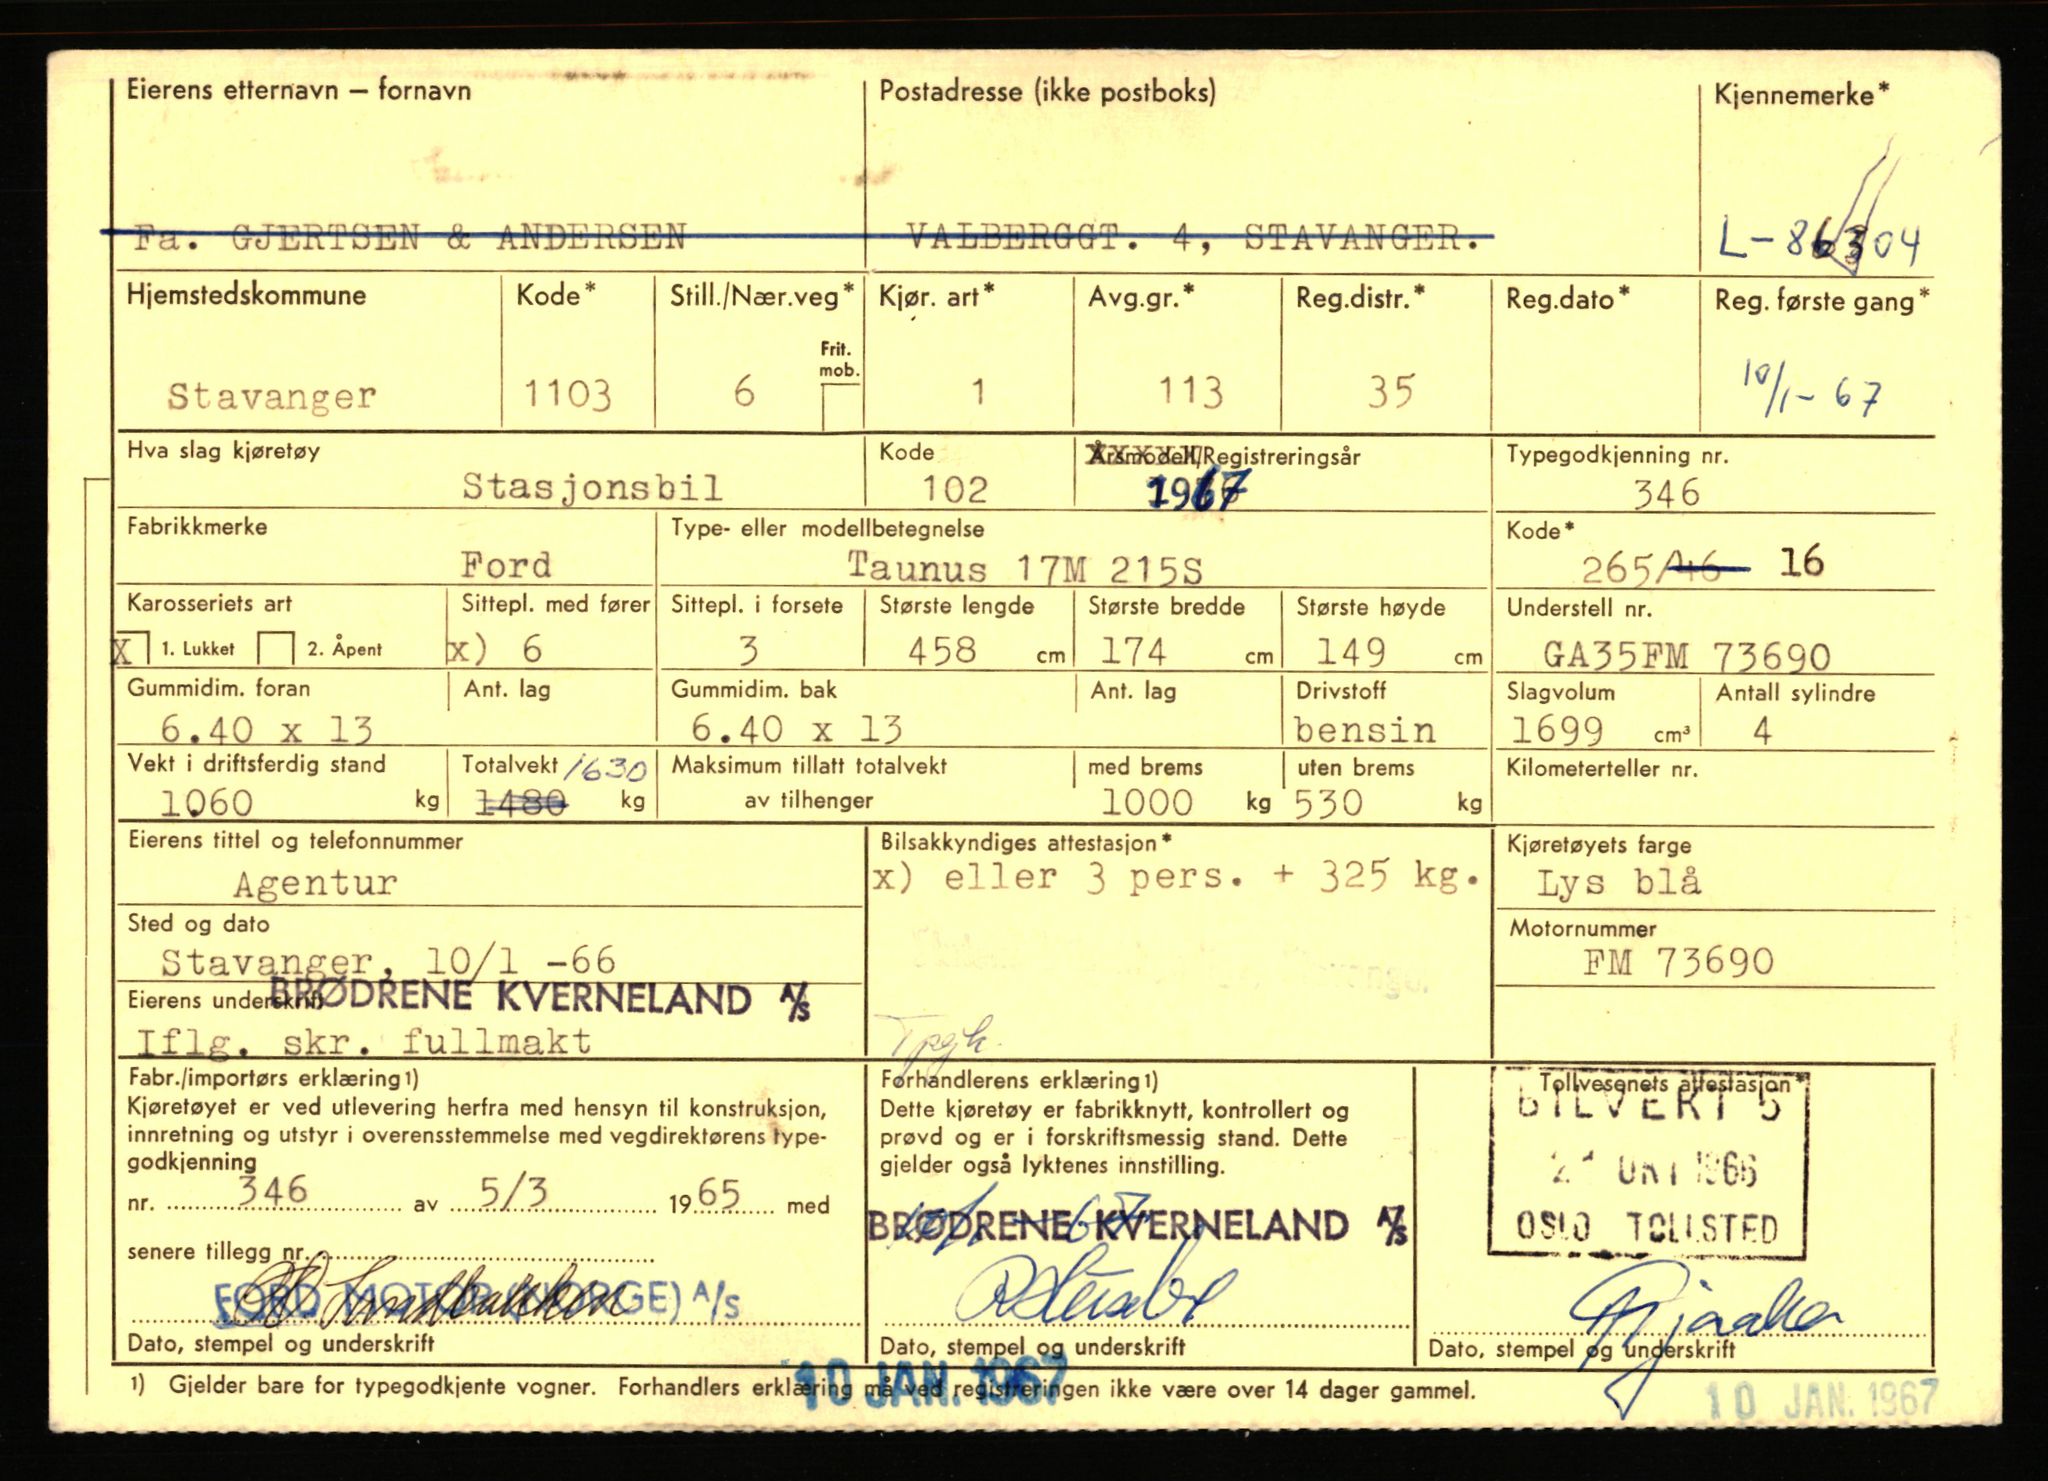 Eierens etternavn – fornavn Postadresse (ikke postboks) Kjennemerke*
Fa. GJERTSEN & ANDERSEN VALBERGGT. 4, STAVANGER. L-86304
Hjemstedskommune Kode* Still./Nær.veg* Kjør. art* Avg.gr.* Reg.distr.* Reg.dato* Reg. første gang*
Frit.
mob.
Stavanger 1103 6 1 113 35 10/1-67
Hva slag kjøretøy Kode Årsmodell/Registreringsår Typegodkjenning nr.
Stasjonsbil 102 1967 346
Fabrikkmerke Type- eller modellbetegnelse Kode*
Ford Taunus 17M 215S 265/46 16
Karosseriets art Sittepl. med fører Sittepl. i forsete Største lengde Største bredde Største høyde Understell nr.
X 1. Lukket 2. Åpent x) 6 3 458 cm 174 cm 149 cm GA35FM 73690
Gummidim. foran Ant. lag Gummidim. bak Ant. lag Drivstoff Slagvolum Antall sylindre
6.40 x 13 6.40 x 13 bensin 1699 cm³ 4
Vekt i driftsferdig stand Totalvekt 1630 Maksimum tillatt totalvekt med brems uten brems Kilometerteller nr.
1060 kg 1480 kg av tilhenger 1000 kg 530 kg
Eierens tittel og telefonnummer Bilsakkyndiges attestasjon* Kjøretøyets farge
Agentur x) eller 3 pers. + 325 kg. Lys blå
Sted og dato Motornummer
Stavanger, 10/1 -66 FM 73690
Eierens underskrift BRØDRENE KVERNELAND A/S
Iflg. skr. fullmakt Tpgk.
Fabr./importørs erklæring1) Forhandlerens erklæring1) Tollvesenets attestasjon*
Kjøretøyet er ved utlevering herfra med hensyn til konstruksjon, Dette kjøretøy er fabrikknytt, kontrollert og BILVERT 5
innretning og utstyr i overensstemmelse med vegdirektørens type- prøvd og er i forskriftsmessig stand. Dette
godkjenning gjelder også lyktenes innstilling. OKT 1966
nr. 346 av 5/3 1965 med
BRØDRENE KVERNELAND A/S OSLO TOLLSTED
senere tillegg nr.
FORD MOTOR (NORGE) A/S
Dato, stempel og underskrift Dato, stempel og underskrift Dato, stempel og underskrift
10 JAN. 1967
1) Gjelder bare for typegodkjente vogner. Forhandlers erklæring må ved registreringen ikke være over 14 dager gammel.
10 JAN. 1967